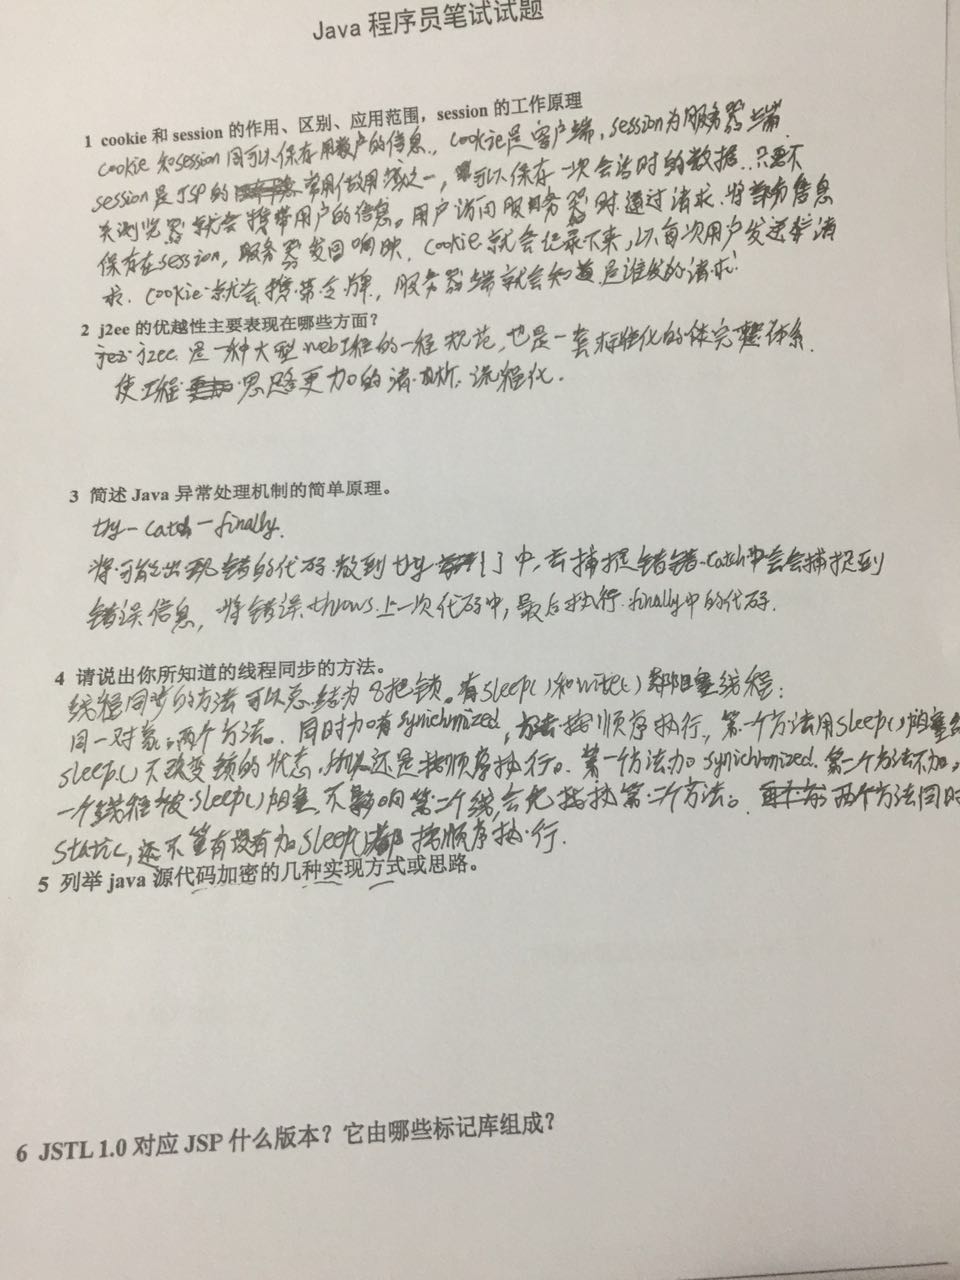 Java 程序员笔试试题
1 cookie 和 session 的作用、区别、应用范围，session 的工作原理
cookie 和session 同可以保存用户的信息., cookie是客户端, session为服务器端.
session是JSP的 常用作用域之一, 可以保存一次会话时的数据. 只要不
关浏览器 就会携带用户的信息。用户访问服务器时.通过请求.将 信息
保存在session, 服务器发回响映. cookie就会记录下来, 以每次用户发送 请
求. cookie就会携带令牌, 服务器端就会知道是谁发的请求.
2 j2ee 的优越性主要表现在哪些方面？
j2ee 是一种大型web工程的一程规范, 也是一套标准化的体完整体系.
使工程 思路更加的清晰. 流程化.
3 简述 Java 异常处理机制的简单原理。
try-catch-finally.
将可能出现错的代码.放到try { } 中, 去捕捉错错.catch中会会捕捉到
错误信息, 将错误 throws 上一次代码中, 最后执行 finally中的代码.
4 请说出你所知道的线程同步的方法。
线程同步的方法可以总结为8把锁。有sleep()和 都阻塞线程;
同一对象.两个方法。同时加有 按顺序执行., 第一个方法用sleep()阻塞
sleep() 不改变锁的状态. 所以还是按顺序执行。第一个方法加 第二个方法不加。
一个线程被sleep()阻塞. 不影响第二个线, 会先 执第二个方法。 两个方法同时
static, 还不管有没有加sleep()都 按顺序执行.
5 列举 java 源代码加密的几种实现方式或思路。
6 JSTL 1.0 对应 JSP 什么版本？它由哪些标记库组成？